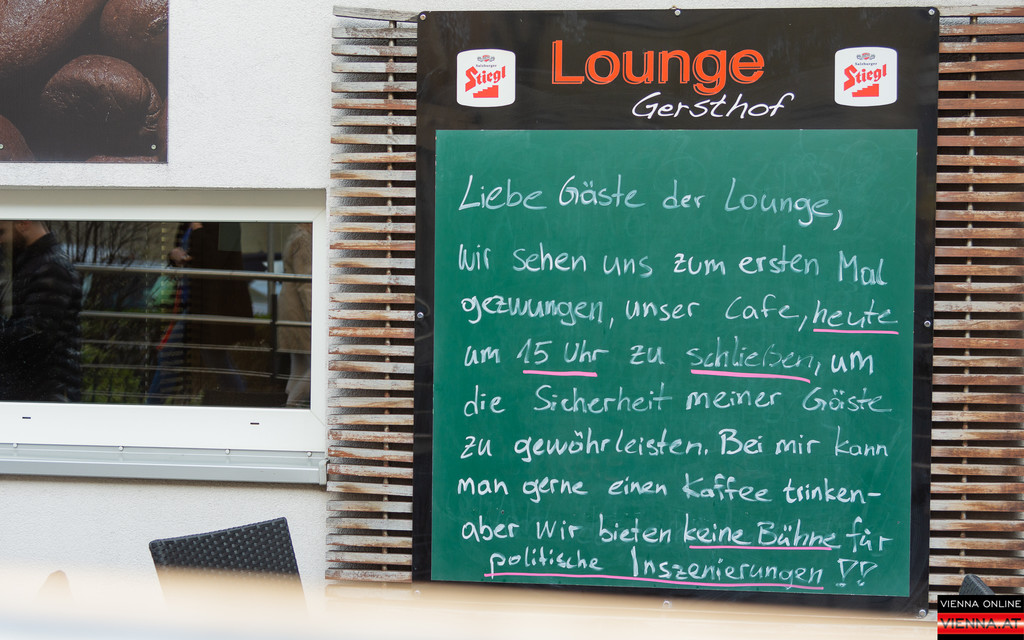 Salzburger
Stiegl
Lounge
Gersthof
Salzburger
Stiegl
Liebe Gäste der Lounge,
Wir sehen uns zum ersten Mal
gezwungen, unser Cafe, heute
um 15 Uhr zu schließen, um
die Sicherheit meiner Gäste
zu gewährleisten. Bei mir kann
man gerne einen Kaffee trinken-
aber wir bieten keine Bühne für
politische Inszenierungen !?!
VIENNA ONLINE
VIENNA.AT